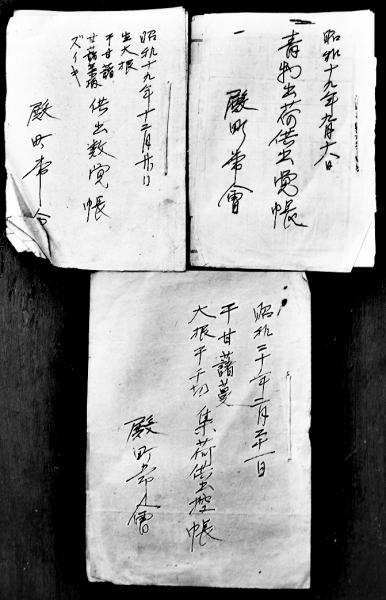 昭和十九年九月十六日
青物出荷供出覚帳
殿町常會
昭和十九年十二月廿日
生大根
干甘藷
甘藷蔓
ズイキ
供出数覚帳
殿町常会
昭和二十年二月二十一日
干甘藷蔓
大根千切
集荷供出控帳
殿町常會